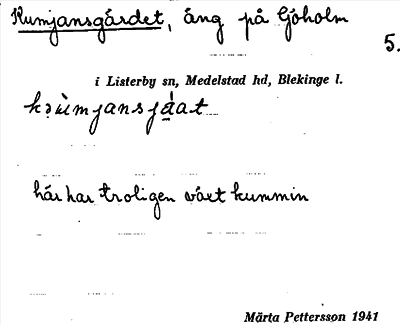 Kumjansgärdet, äng på Göholm
5.
i Listerby sn, Medelstad hd, Blekinge l.
här har troligen växt kummin
Märta Pettersson 1941